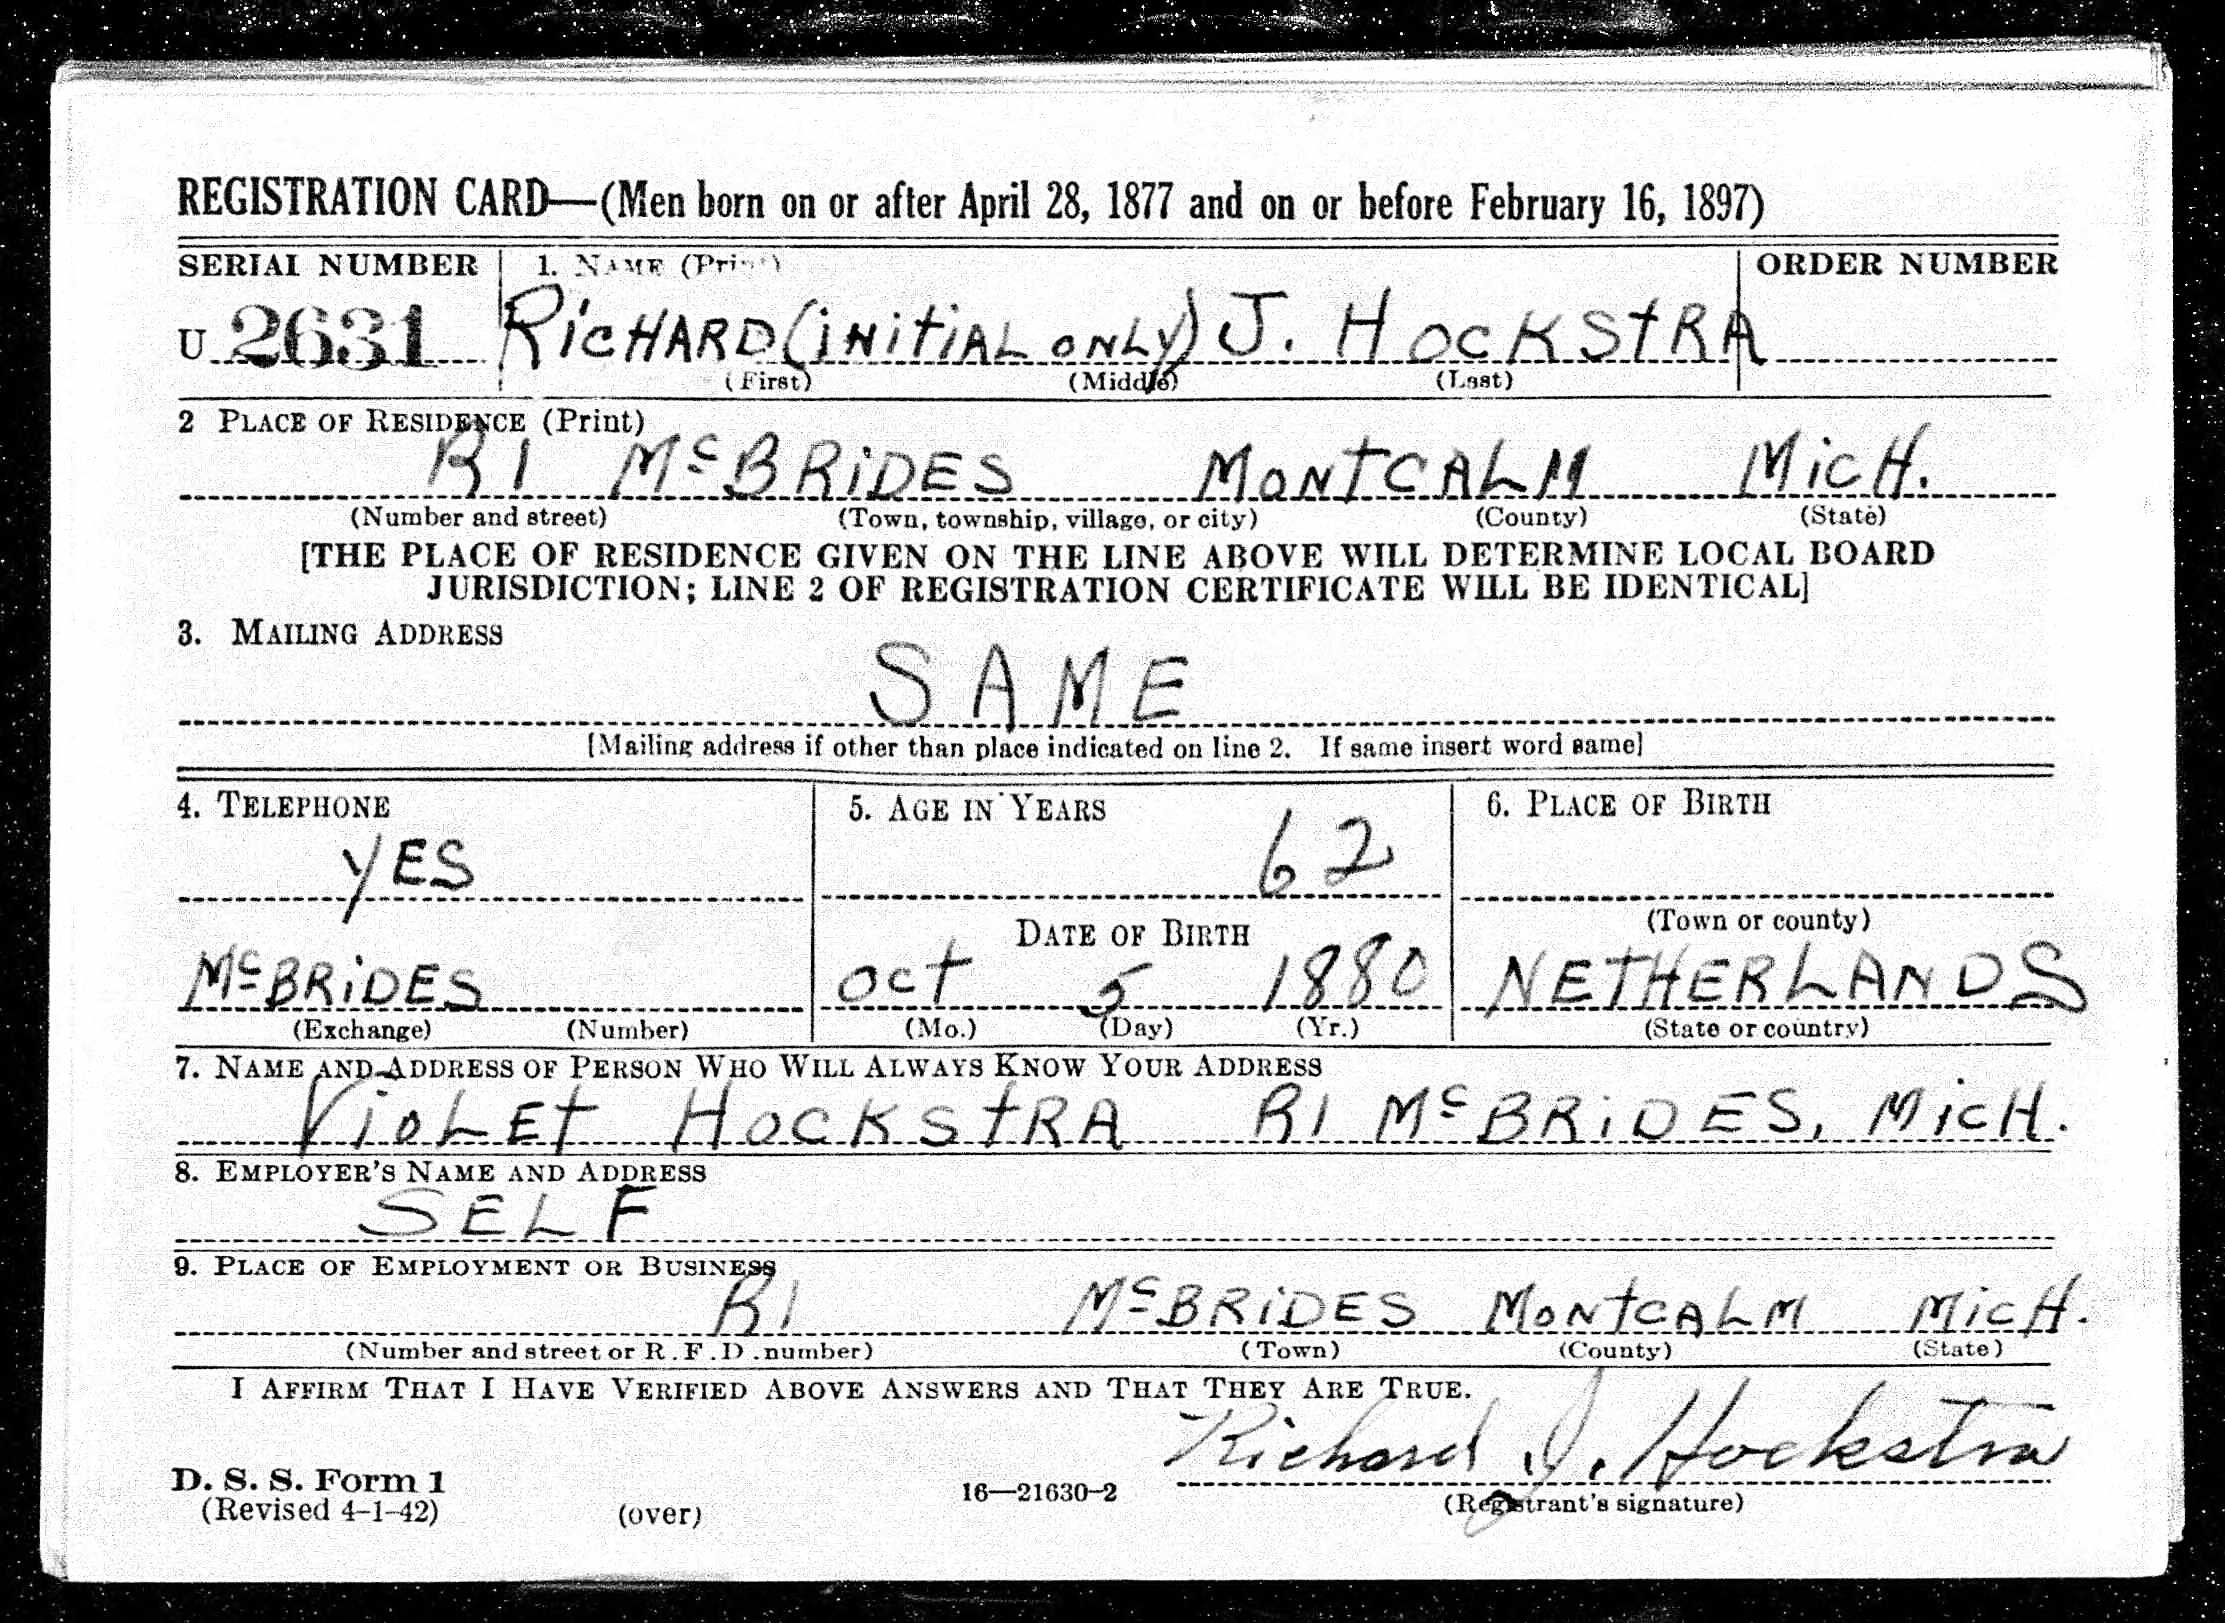 REGISTRATION CARD—(Men born on or after April 28, 1877 and on or before February 16, 1897)
SERIAL NUMBER 1. NAME (Print) ORDER NUMBER
U 2631 RiCHARD (iNitiAL ONLY) J. HOCKStRA
(First) (Middle) (Last)
2 PLACE OF RESIDENCE (Print)
R1 McBRiDES MONTCALM MicH.
(Number and street) (Town, township, village, or city) (County) (State)
[THE PLACE OF RESIDENCE GIVEN ON THE LINE ABOVE WILL DETERMINE LOCAL BOARD
JURISDICTION; LINE 2 OF REGISTRATION CERTIFICATE WILL BE IDENTICAL]
3. MAILING ADDRESS
SAME
[Mailing address if other than place indicated on line 2. If same insert word same]
4. TELEPHONE 5. AGE IN YEARS 6. PLACE OF BIRTH
YES 62
DATE OF BIRTH (Town or county)
McBRiDES Oct 5 1880 NETHERLANDS
(Exchange) (Number) (Mo.) (Day) (Yr.) (State or country)
7. NAME AND ADDRESS OF PERSON WHO WILL ALWAYS KNOW YOUR ADDRESS
ViOLEt HOCKStRA R1 McBRiDES, MicH.
8. EMPLOYER'S NAME AND ADDRESS
SELF
9. PLACE OF EMPLOYMENT OR BUSINESS
R1 McBRiDES MONtCALM MicH.
(Number and street or R.F.D. number) (Town) (County) (State)
I AFFIRM THAT I HAVE VERIFIED ABOVE ANSWERS AND THAT THEY ARE TRUE.
Richard J. Hockstra
D. S. S. Form 1
(Revised 4-1-42) (over) 16—21630-2 (Registrant's signature)